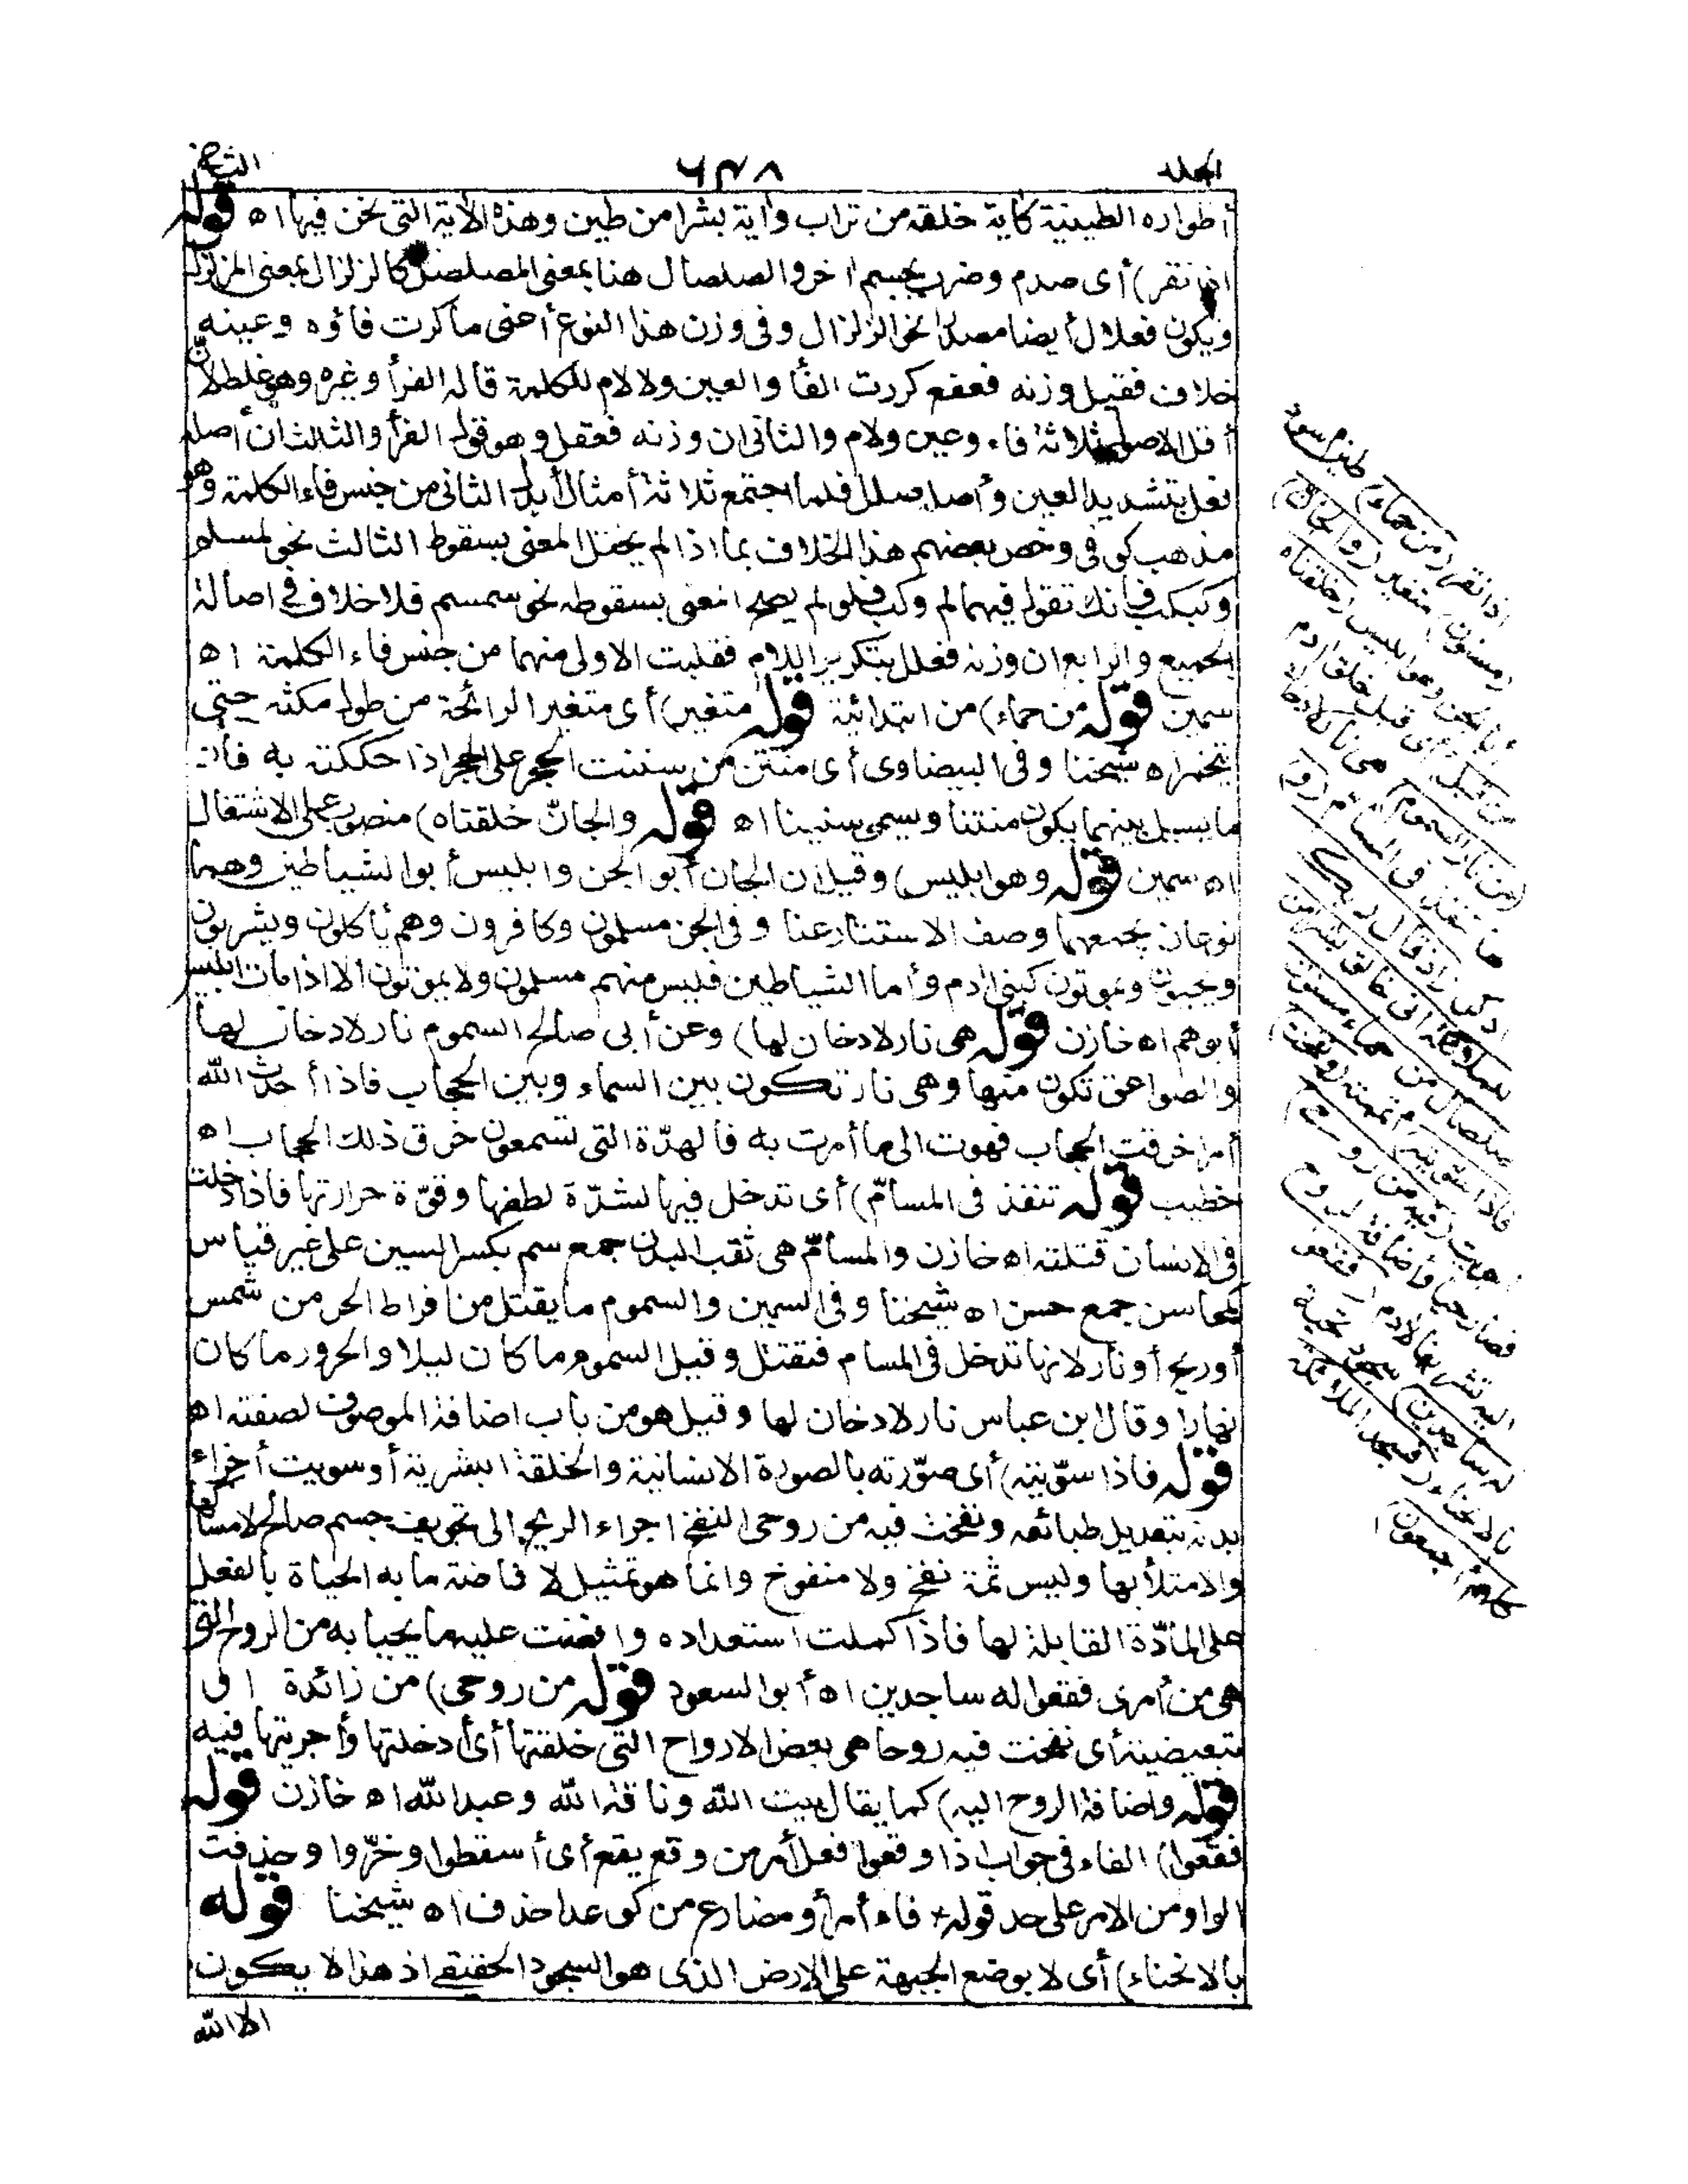 المجلد
٦٣٨
أطواره الطينية كآية خلقه من تراب وآية بشرا من طين وهذه الآية التي نحن فيها اه قوله
اذا نقر) أى صدم وضرب بجسم اخر والصلصال هنا بمعنى المصلصل كالزلزال بمعنى المزلزل
ويكون فعلال أيضا مصدرا نحو الزلزال وفى وزن هذا النوع أعنى ما كررت فاؤه وعينه
خلاف فقيل وزنه فعفع كررت الفأ والعين ولا لام للكلمة قاله الفرأ وغيره وهو غلط لأنّ
أقل الاصول ثلاثة فاء وعين ولام والثانى ان وزنه فعفل وهو قول الفرأ والثالث ان أصله
فعل بتشديد العين وأصله صلل فلما اجتمع ثلاثة أمثال أبدل الثانى من جنس فاء الكلمة وهو
مذهب كوفى وخص بعضهم هذا الخلاف بما اذا لم يختل المعنى بسقوط الثالث نحو لملم
وكبكب فانك تقول فيهما لم وكب فلو لم يصح المعنى بسقوطه نحو سمسم فلا خلاف فى اصالة
الجميع والرابع ان وزنه فعلل بتكرير اللام فقلبت الاولى منهما من جنس فاء الكلمة اه
سمين قوله من حماء) من ابتدائية قوله متغير) أى متغير الرائحة من طول مكثه حتى
يتخمر اه شيخنا وفى البيضاوى أى منتن من سننت الحجر على الحجر اذا حككته به فان
ما يسيل بينهما يكون منتنا ويسمى سنينا اه قوله والجانّ خلقناه) منصوب على الاشتغال
اه سمين قوله وهو ابليس) وقيل ان الجان أبو الجن وابليس أبو الشياطين وهما
نوعان يجمعهما وصف الاستتار عنا وفى الجن مسلمون وكافرون وهم يأكلون ويشربون
ويحيون ويموتون كبنى ادم وأما الشياطين فليس منهم مسلمون ولا يموتون الا اذا مات ابليس
أبوهم اه خازن قوله هى نار لا دخان لها) وعن أبى صالح السموم نار لا دخان لها
والصواعق تكون منها وهى نار تكون بين السماء وبين الحجاب فاذا أحدث الله
أمرا خرقت الحجاب فهوت الى ما أمرت به فالهدّة التى تسمعون خرق ذلك الحجاب اه
خطيب قوله تنفذ فى المسامّ) أى تدخل فيها لشدّة لطفها وقوّة حرارتها فاذا دخلت
فى الانسان قتلته اه خازن والمسامّ هى ثقب البدن جمع سم بكسر السين على غير قياس
كمحاسن جمع حسن اه شيخنا وفى السمين والسموم ما يقتل من افراط الحر من شمس
أو ريح أو نار لانها تدخل فى المسام فتقتل وقيل السموم ما كان ليلا والحرور ما كان
نهارا وقال ابن عباس نار لا دخان لها وقيل هو من باب اضافة الموصوف لصفته اه
قوله فاذا سوّيته) أى صوّرته بالصورة الانسانية والخلقة البشرية أو سويت أجزاء
بدنه بتعديل طبائعه ونفخت فيه من روحى النفخ اجراء الريح الى تجويف جسم صالح لامساكها
والامتلأ بها وليس ثمة نفخ ولا منفوخ وانما هو تمثيل لافاضة ما به الحياة بالفعل
على المادّة القابلة لها فاذا كملت استعداده وافضت عليه ما يحيا به من الروح التى
هى من أمرى فقعوا له ساجدين اه أبو السعود قوله من روحى) من زائدة او
تبعيضية أى نفخت فيه روحا هى بعض الارواح التى خلقتها أى أدخلتها وأجريتها فيه
قوله واضافة الروح اليه) كما يقال بيت الله وناقة الله وعبد الله اه خازن قوله
فقعوا) الفاء فى جواب اذا وقعوا فعل أمر من وقع يقع أى أسقطوا وخرّوا وحذفت
الواو من الامر على حد قوله * فاء أمر أو مضارع من كوعد احذف اه شيخنا قوله
بالانحناء) أى لا بوضع الجبهة على الارض الذى هو السجود الحقيقى اذ هذا لا يكون
الا لله
اذا نقر (من حماء) طين أسود
(مسنون) متغير (والجان)
أبا الجن وهو ابليس (خلقناه
من قبل) أى قبل خلق ادم
(من نار السموم) هى نار لا دخان لها
تنفذ فى المسامّ (و)
اذكر (اذ قال ربك
للملائكة انى خالق بشرا من
صلصال من حماء مسنون
فاذا سوّيته) أتممته (ونفخت)
أجريت (فيه من روحى)
فصار حيا واضافة الروح
اليه تشريف لادم (فقعوا
له ساجدين) سجود تحية
بالانحناء (فسجد الملائكة
كلهم أجمعون)